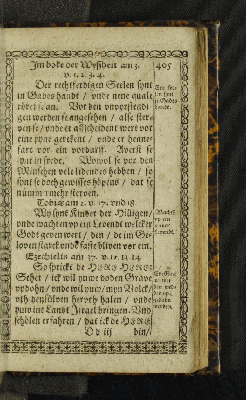 Jm boke der Wyſheit am 3. 405
v. 1. 2. 3. 4.
Der rechtferdigen Seelen ſynt
in Gades handt / vnde nene quale
röret ſe an. Vor den vnvorſtendi-
gen werden ſe angeſehen / alſe ſter-
ven ſe / vnde er affſcheident wert vor
eine pyne gerekent / vnde er henne-
fart vor ein vordarff. Averſt ſe
ſynt in frede. Wowol ſe vor den
Minſchen vele lidendes hebben / ſo
ſynt ſe doch gewiſſes höpens / dat ſe
nümmermehr ſterven.
Tobiæ am 2. v. 17. vnd 18
Wy ſynt Kinder der Hilligen /
vnde wachten vp ein Levendt welcker
Godt geven wert / den / de im Ge-
loven ſtarck vnde faſte bliven vor em.
Ezechielis am 37. v. 12. 13. 14
So ſprickt de HERE HERE:
Sehet / ick wil yuwe Grave
vpdohn / vnde wil yuw / myn Volck /
vth denſülven heruth halen / vnde
yuw int Landt Jſrael bringen. Vnd
ſchölen erfahren / dat ick de HERE
Dd iij bin /